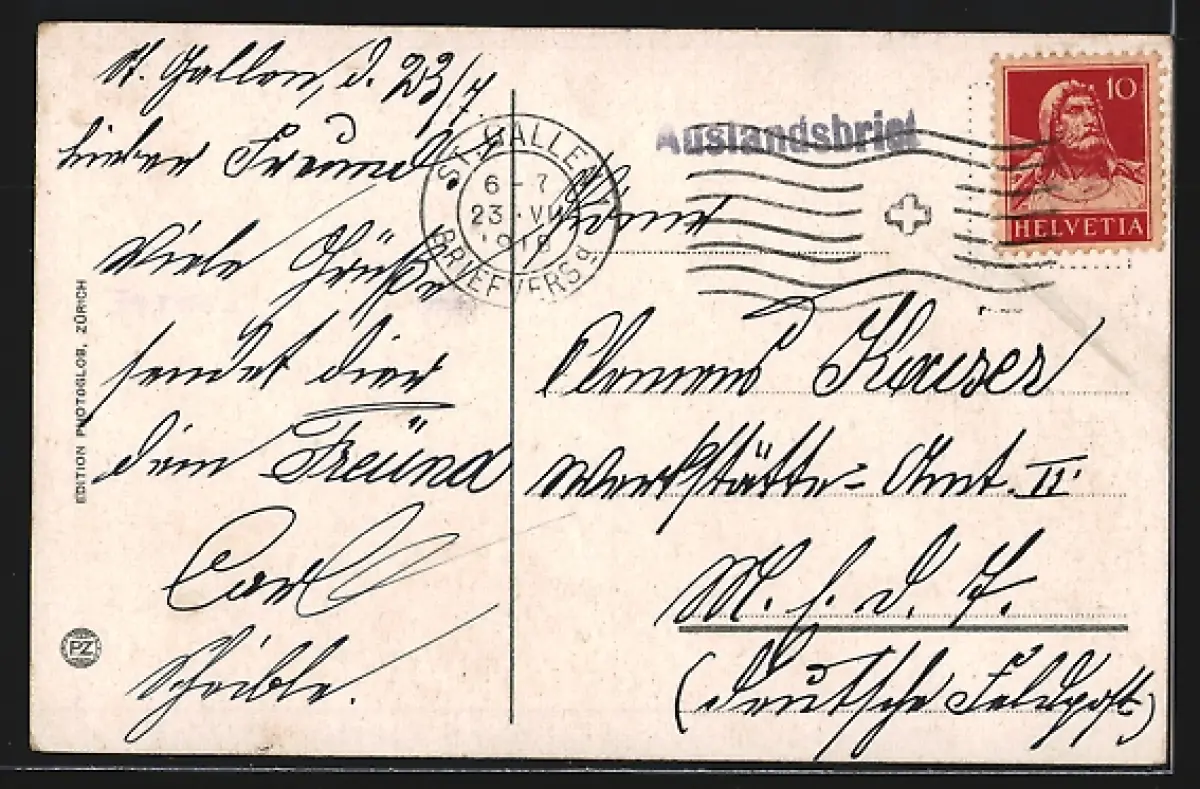 St. Gallen, d. 23/7
Lieber Freund.
Viele Grüße
sendet dier
dein Freünd
Carl
Scheible.
EDITION PHOTOGLOB, ZÜRICH
PZ
ST. GALLEN
6-7
23. VII
1918
BRIEFVERSd.
Auslandsbrief
10
HELVETIA
Herrn
Clemens Kaiser
Werkstätte-Amt II.
M. E. D. 7.
(Deutsche Feldpost)